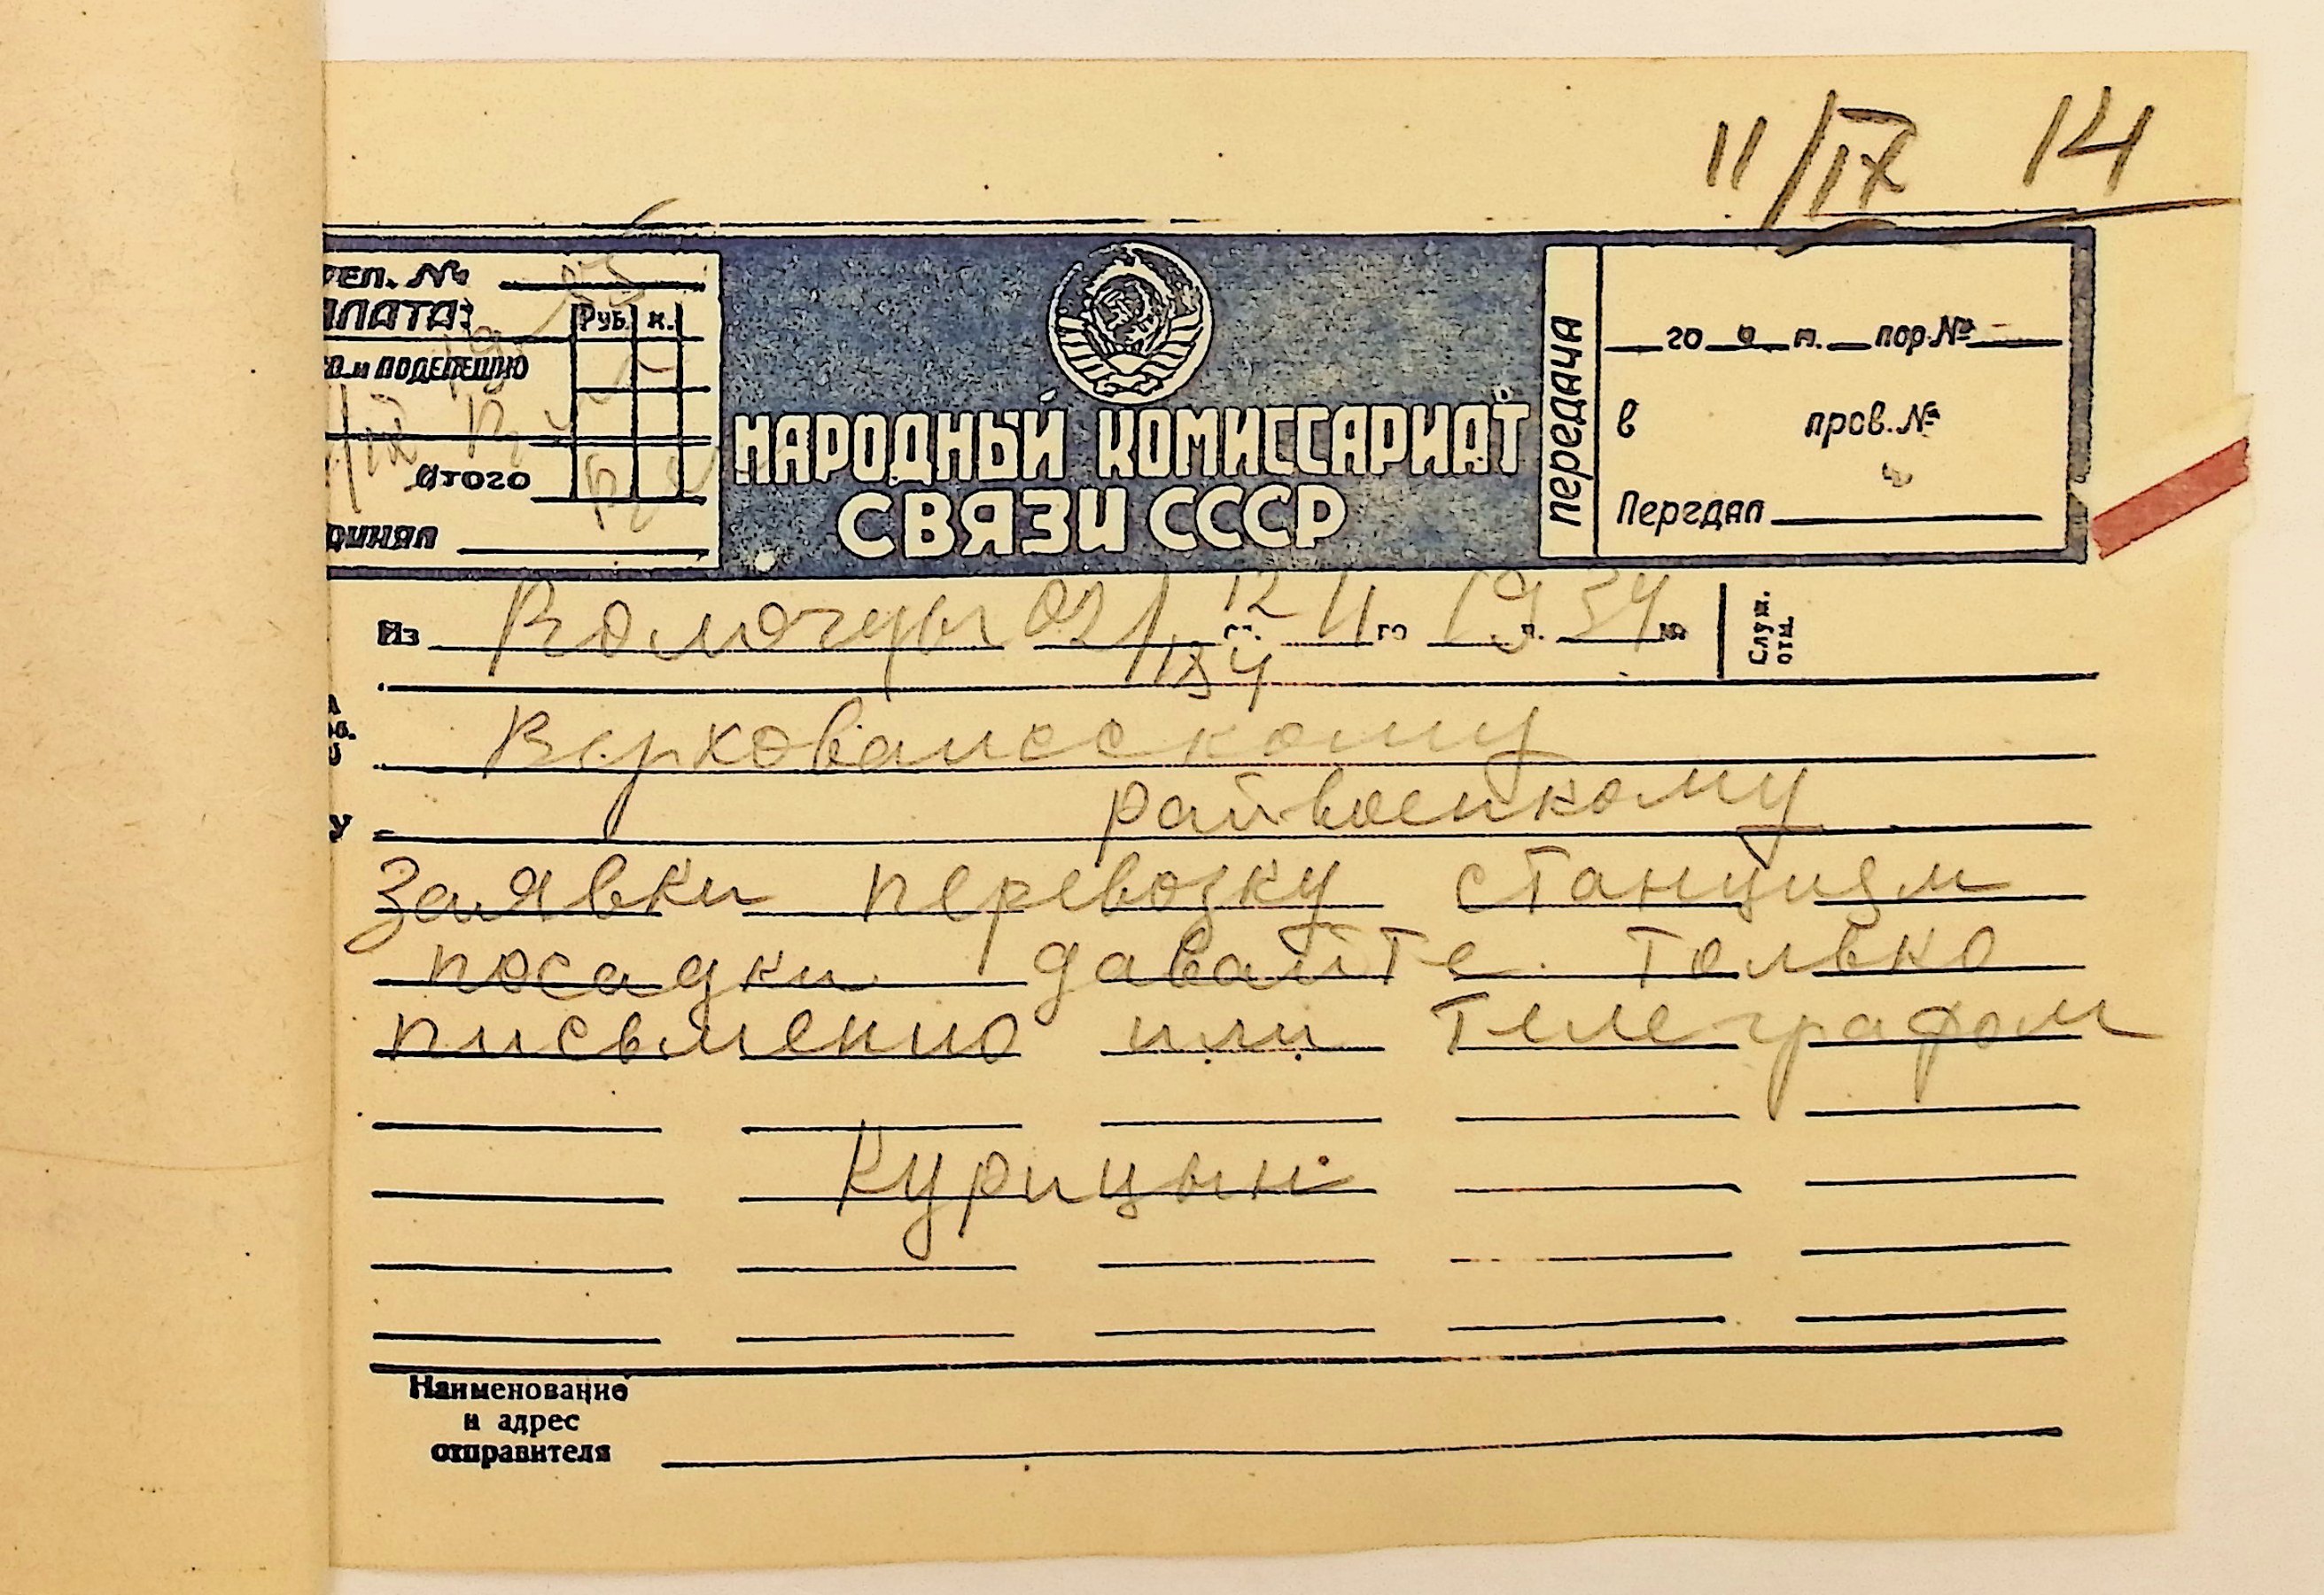 11/IX 14
ПЛАТА: Руб. к.
Итого
НАРОДНЫЙ КОМИССАРИАТ
СВЯЗИ СССР
передача
го ч. м. пор.№
в пров.№
Передал
Из Вологды 12 11 го 19 34
Служ.
отм.
Верховажскому
райвоенкому
Заявки перевозку станциям
посадки давайте только
письменно или телеграфом
Курицын
Наименование
и адрес
отправителя